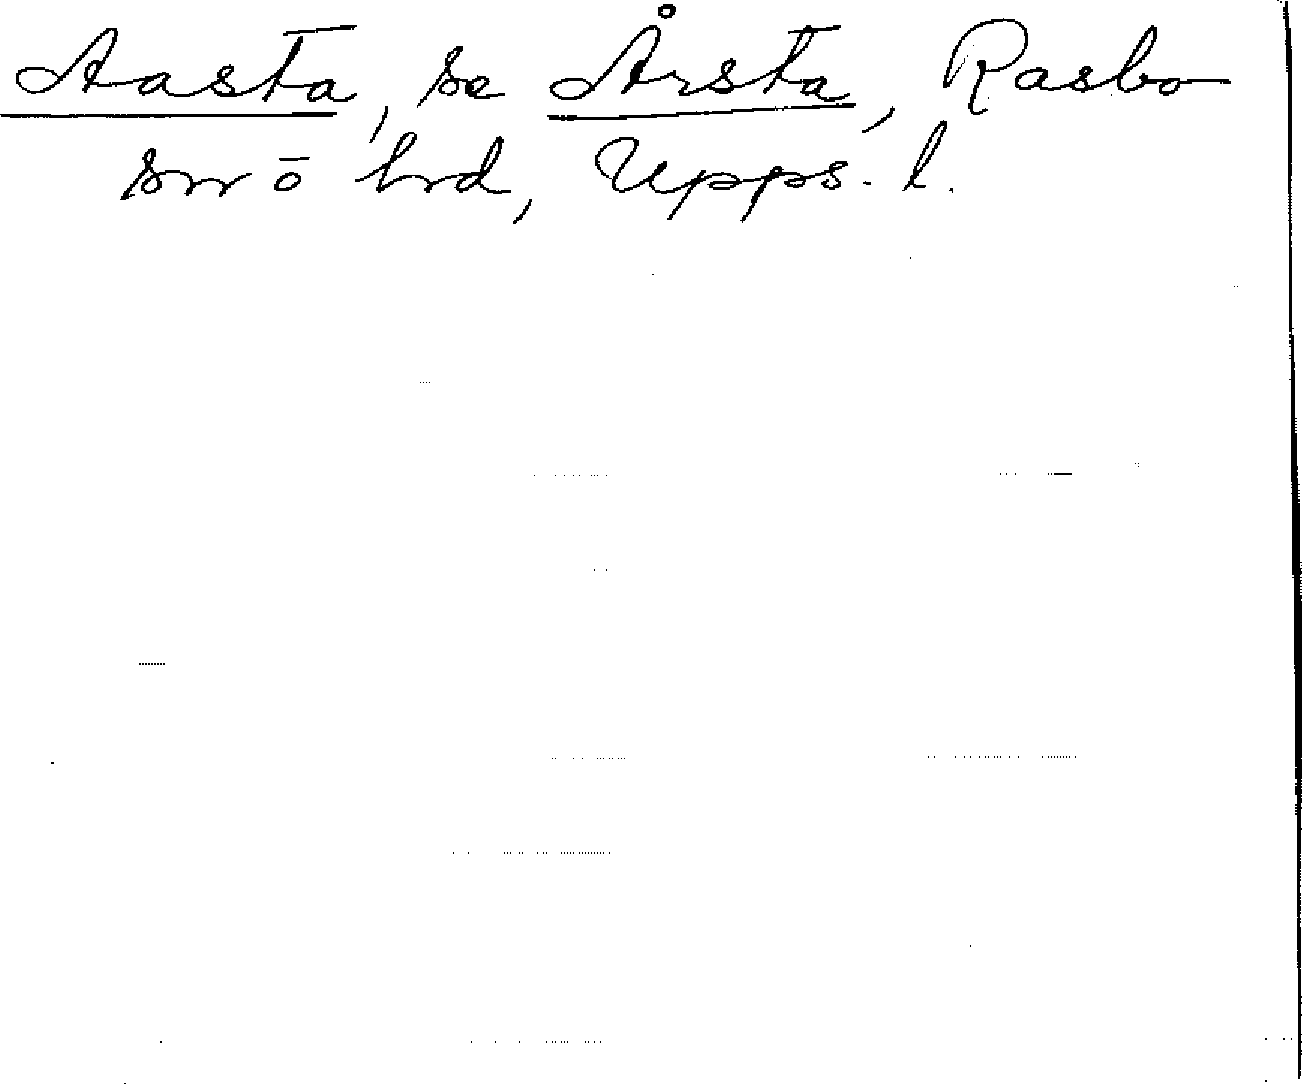 Aasta, se Årsta, Rasbo
sn o hd, Upps. l.